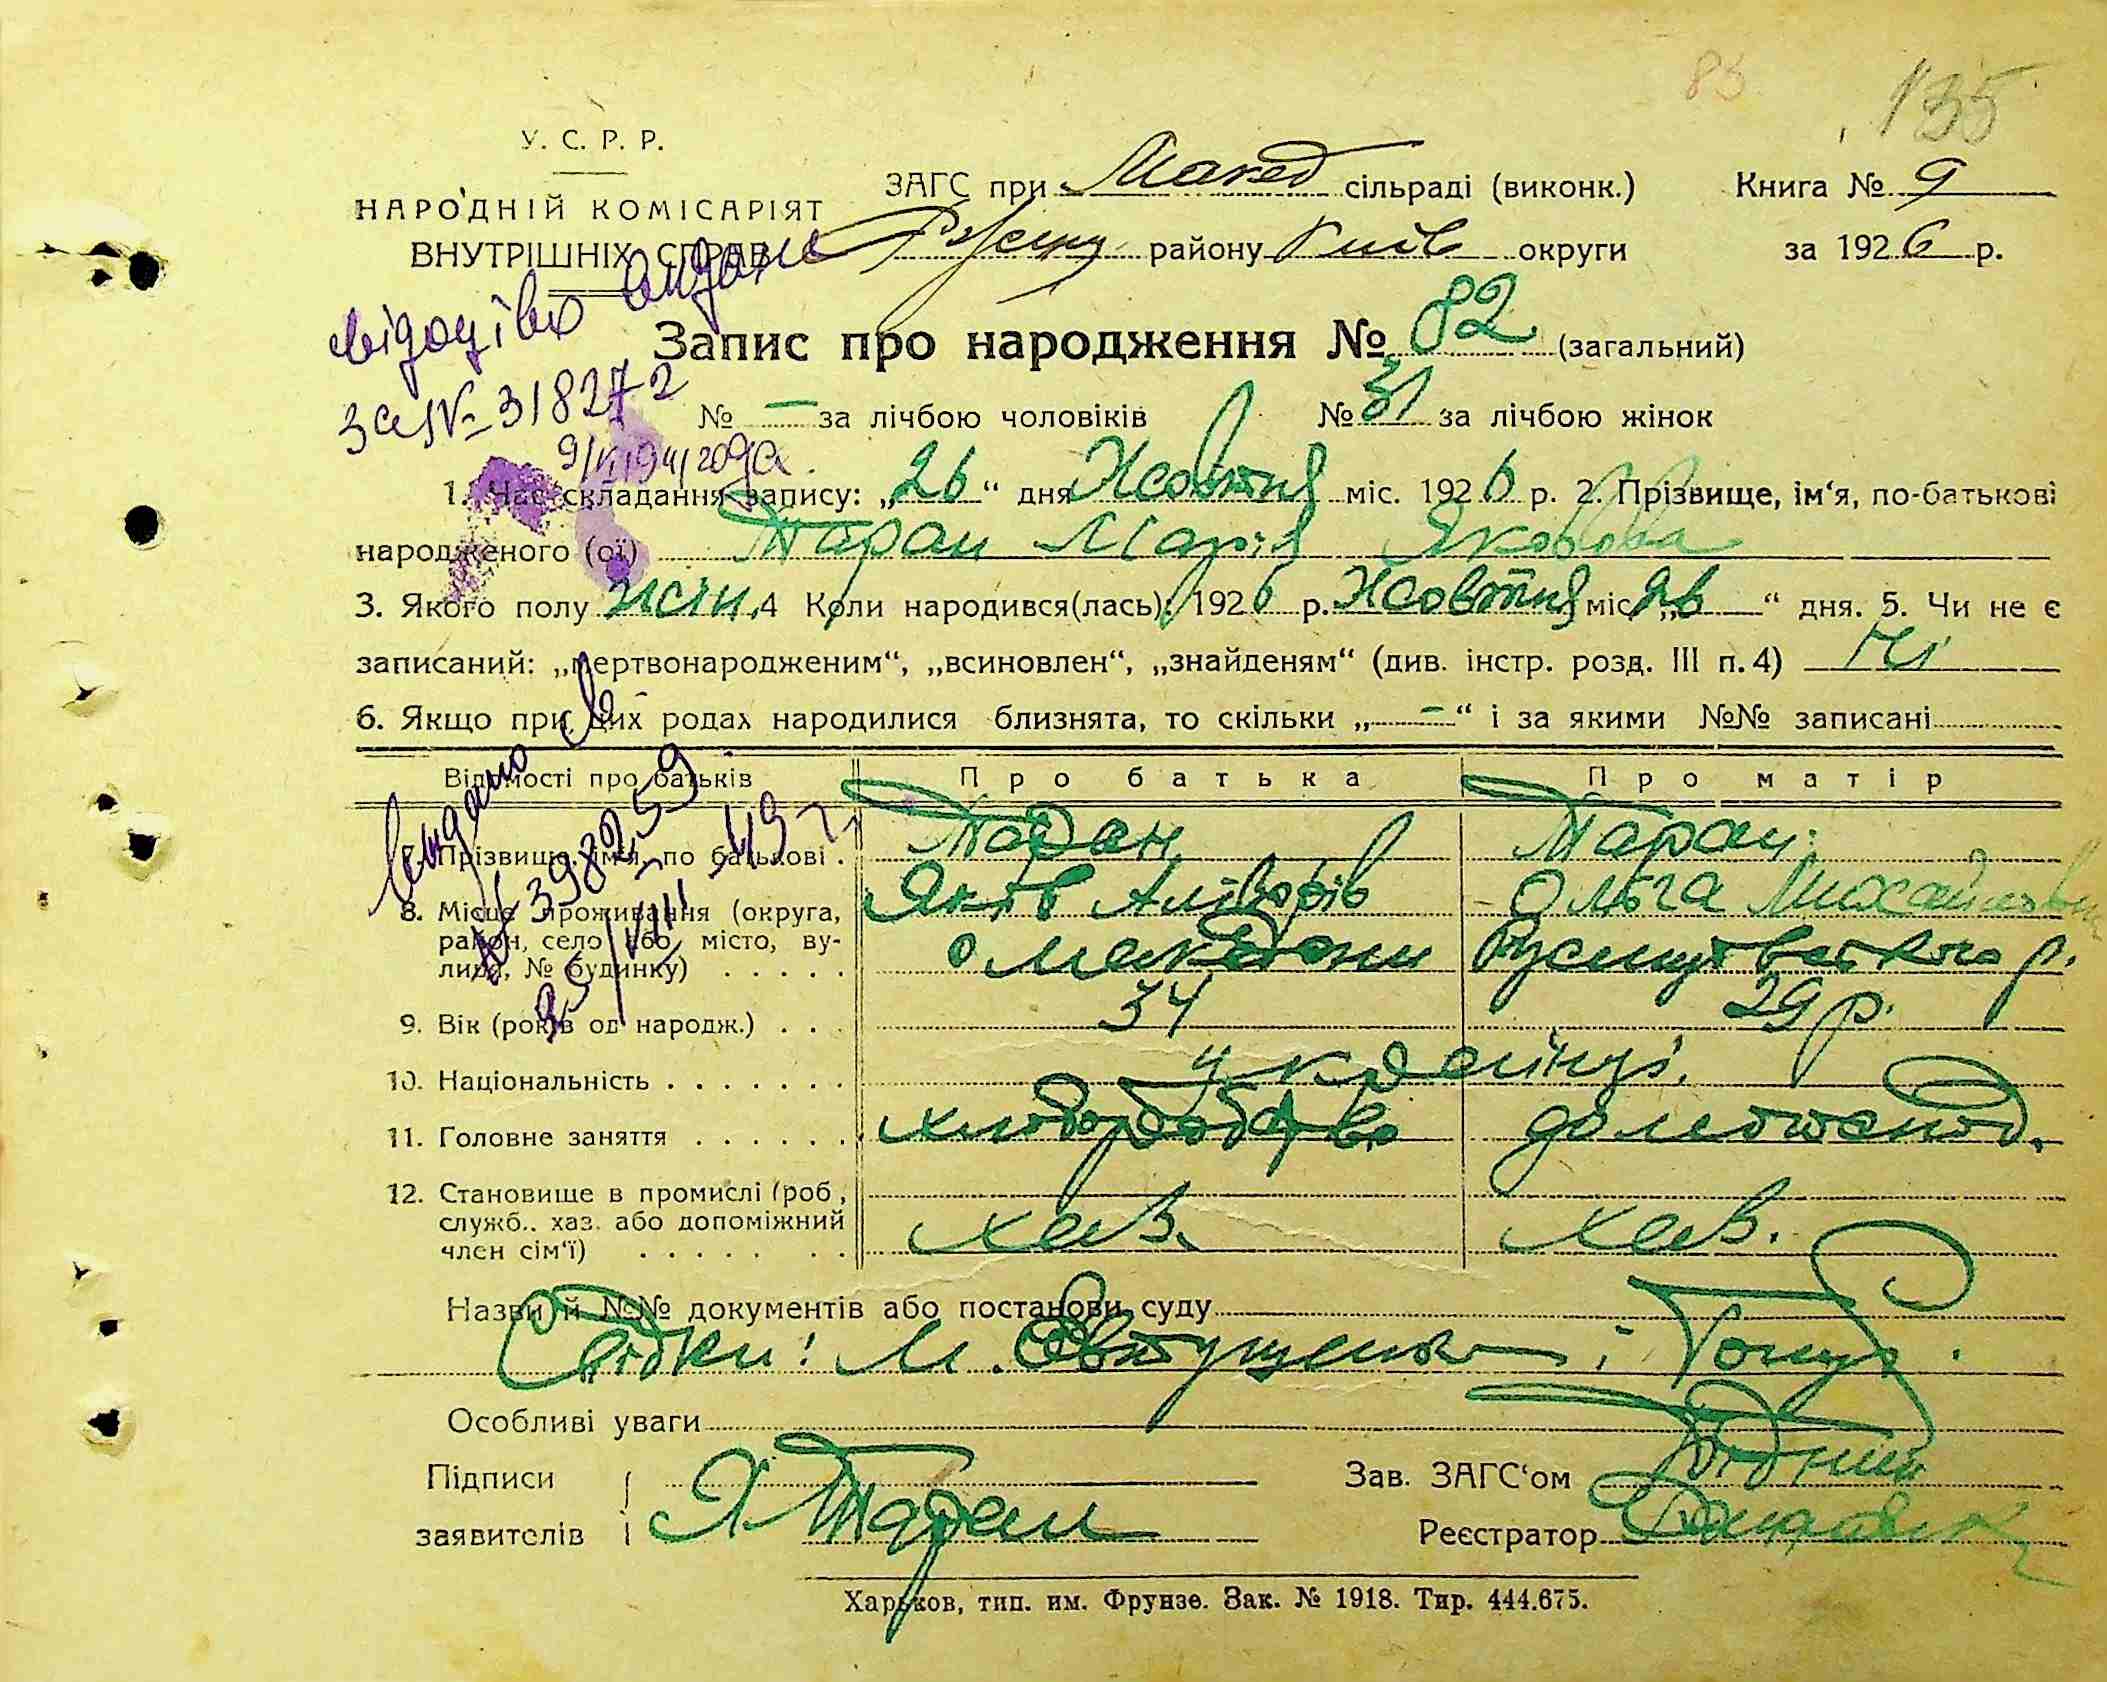 83
135
У. С. Р. Р.
НАРОДНІЙ КОМІСАРІЯТ
ВНУТРІШНІХ СПРАВ
ЗАГС при Макед сільраді (виконк.) Книга № 9
району Київ округи за 1926 р.
видано
Запис про народження № 82 (загальний)
за № 318272
№ — за лічбою чоловіків № 31 за лічбою жінок
9/VI 1941 года.
1. Час складання запису: „26“ дня Жовтня міс. 1926 р. 2. Прізвище, ім‘я, по-батькові
народженого (ої) Таран Марія Яковова
3. Якого полу жін. 4 Коли народився(лась): 1926 р. Жовтня міс. „26“ дня. 5. Чи не є
записаний: „мертвонародженим“, „всиновлен“, „знайденям“ (див. інстр. розд. III п. 4) Ні
6. Якщо при цих родах народилися близнята, то скільки „—“ і за якими №№ записані
Відомості про батьків Про батька Про матір
видано
№ 398259
25/VIII-43 г.
7. Прізвище, ім‘я, по батькові . Таран Таран
Яків Ольга Михайловн
8. Місце проживання (округа, район, село або місто, вулиця, № будинку) . . . . .
Македони
9. Вік (років од народж.) . . . 34 29 р.
10. Національність . . . . . . . українці.
11. Головне заняття . . . . . . хліборобство домогоспод.
12. Становище в промислі (роб.,
служб., хаз. або допоміжний
член сім‘ї) . . . . . . . хаз. хаз.
Назви й №№ документів або постанови суду
Свідки: М. Євтушенко і
Особливі уваги
Підписи
заявителів Я Таран
Зав. ЗАГС‘ом
Реєстратор
Харьков, тип. им. Фрунзе. Зак. № 1918. Тир. 444.675.